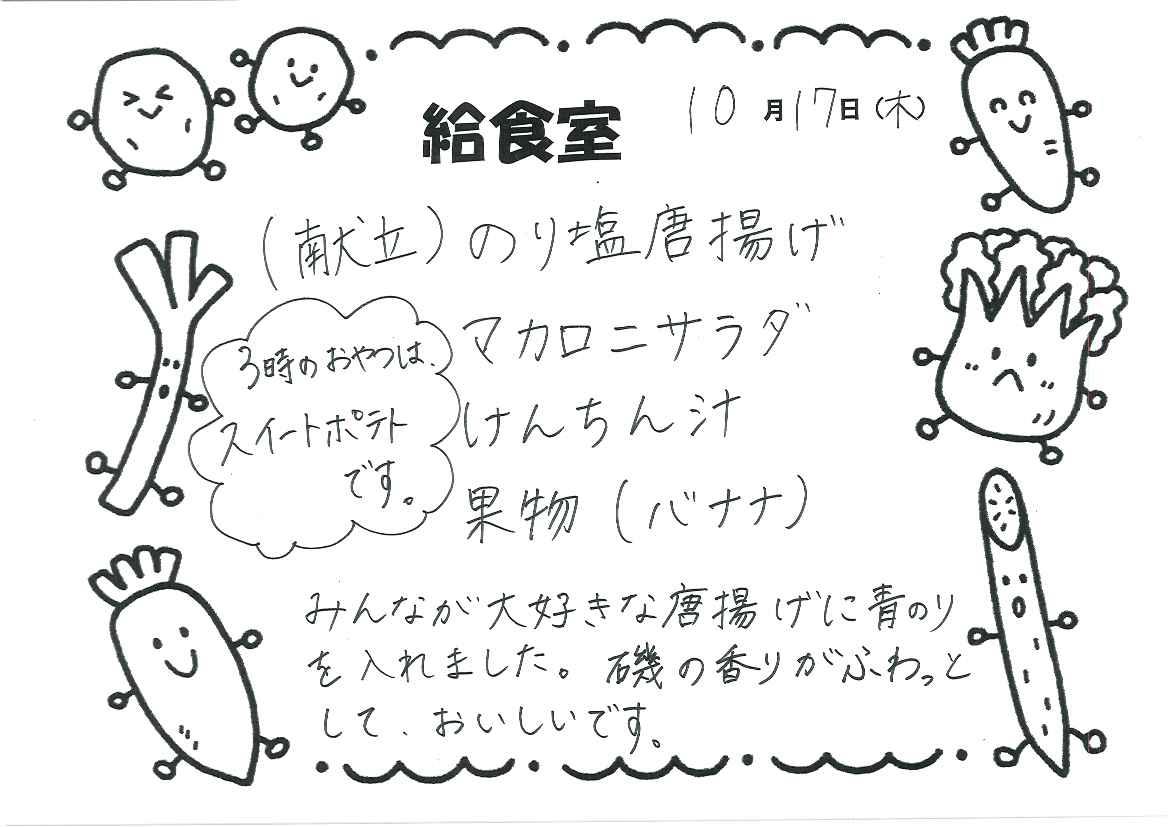 給食室
10月17日(木)
(献立)のり塩唐揚げ
マカロニサラダ
けんちん汁
果物(バナナ)
3時のおやつは、
スイートポテト
です。
みんなが大好きな唐揚げに青のり
を入れました。磯の香りがふわっと
して、おいしいです。